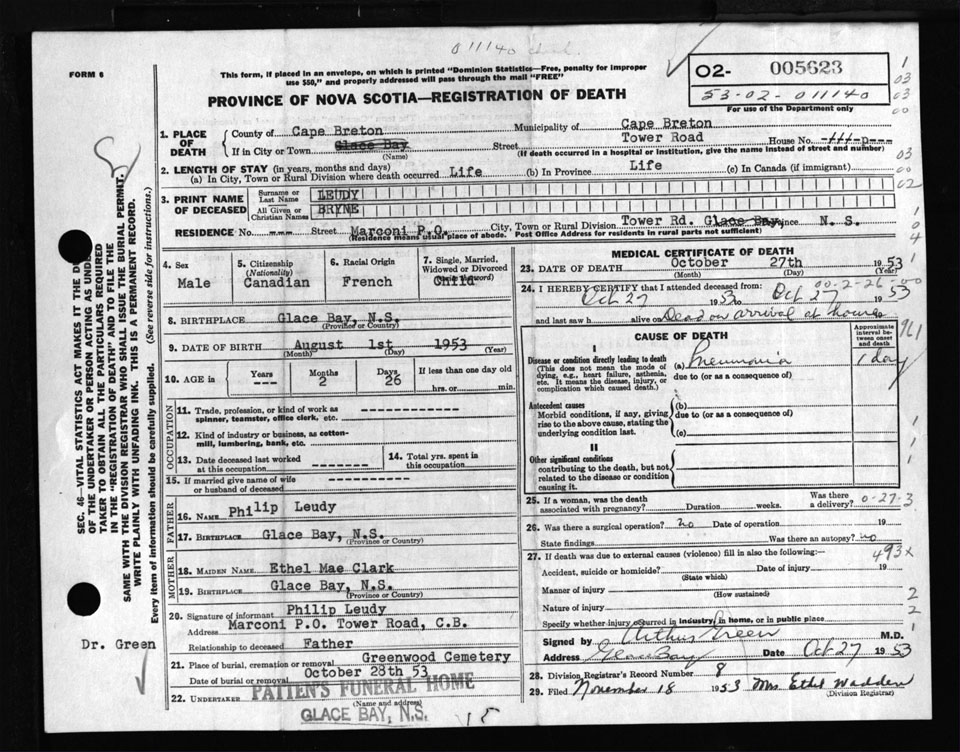 011140
FORM 6
This form, if placed in an envelope, on which is printed "Dominion Statistics—Free, penalty for improper
use $50," and properly addressed will pass through the mail "FREE"
PROVINCE OF NOVA SCOTIA—REGISTRATION OF DEATH
02- 005623
53-02-011140
For use of the Department only
1. PLACE OF DEATH
County of Cape Breton Municipality of Cape Breton
If in City or Town Glace Bay Street Tower Road House No.
(Name) (If death occurred in a hospital or institution, give the name instead of street and number)
2. LENGTH OF STAY (in years, months and days)
(a) In City, Town or Rural Division where death occurred Life (b) In Province Life (c) In Canada (if immigrant)
3. PRINT NAME OF DECEASED
Surname or Last Name LEUDY
All Given or Christian Names BRYNE
RESIDENCE No. --- Street Marconi P.O. City, Town or Rural Division Tower Rd. Glace Bay, Province N. S.
(Residence means usual place of abode. Post Office Address for residents in rural parts not sufficient)
4. Sex Male
5. Citizenship (Nationality) Canadian
6. Racial Origin French
7. Single, Married, Widowed or Divorced Child
8. BIRTHPLACE Glace Bay, N.S.
(Province or Country)
9. DATE OF BIRTH August 1st 1953
(Month) (Day) (Year)
10. AGE in Years --- Months 2 Days 26 If less than one day old hrs. or min.
OCCUPATION
11. Trade, profession, or kind of work as spinner, teamster, office clerk, etc.
12. Kind of industry or business, as cotton-mill, lumbering, bank, etc.
13. Date deceased last worked at this occupation
14. Total yrs. spent in this occupation
15. If married give name of wife or husband of deceased
FATHER
16. NAME Philip Leudy
17. BIRTHPLACE Glace Bay, N.S.
(Province or Country)
MOTHER
18. MAIDEN NAME Ethel Mae Clark
19. BIRTHPLACE Glace Bay, N.S.
(Province or Country)
20. Signature of informant Philip Leudy
Address Marconi P.O. Tower Road, C.B.
Relationship to deceased Father
21. Place of burial, cremation or removal Greenwood Cemetery
Date of burial or removal October 28th 53
22. UNDERTAKER PATTEN'S FUNERAL HOME
(Name and address)
GLACE BAY, N.S.
MEDICAL CERTIFICATE OF DEATH
23. DATE OF DEATH October 27th 1953
(Month) (Day) (Year)
00-2-26-00
24. I HEREBY CERTIFY that I attended deceased from:
Oct 27 1953 to Oct 27 1953
and last saw h alive on Dead on arrival at house
CAUSE OF DEATH
Approximate interval between onset and death
Disease or condition directly leading to death
(This does not mean the mode of dying, e.g., heart failure, asthenia, etc. It means the disease, injury, or complication which caused death.)
(a) Pneumonia 1 day
due to (or as a consequence of)
Antecedent causes
Morbid conditions, if any, giving rise to the above cause, stating the underlying condition last.
(b)
due to (or as a consequence of)
(c)
II
Other significant conditions
contributing to the death, but not related to the disease or condition causing it.
25. If a woman, was the death associated with pregnancy? Duration weeks. Was there a delivery?
0-27-3
26. Was there a surgical operation? no Date of operation 19
State findings Was there an autopsy? no
27. If death was due to external causes (violence) fill in also the following:—
493x
Accident, suicide or homicide? Date of injury 19
(State which)
Manner of injury
(How sustained)
Nature of injury
Specify whether injury occurred in industry, in home, or in public place
Signed by Arthur Green M.D.
Address Glace Bay Date Oct 27 1953
28. Division Registrar's Record Number 8
29. Filed November 18 1953 Mrs. Ethel Wadden
(Division Registrar)
SEC. 46—VITAL STATISTICS ACT MAKES IT THE
OF THE UNDERTAKER OR PERSON ACTING AS UNDER-
TAKER TO OBTAIN ALL THE PARTICULARS REQUIRED
IN THE "REGISTRATION OF DEATH" AND TO FILE THE
SAME WITH THE DIVISION REGISTRAR WHO SHALL ISSUE THE BURIAL PERMIT.
WRITE PLAINLY WITH UNFADING INK. THIS IS A PERMANENT RECORD.
Every item of information should be carefully supplied. (See reverse side for instructions.)
Dr. Green